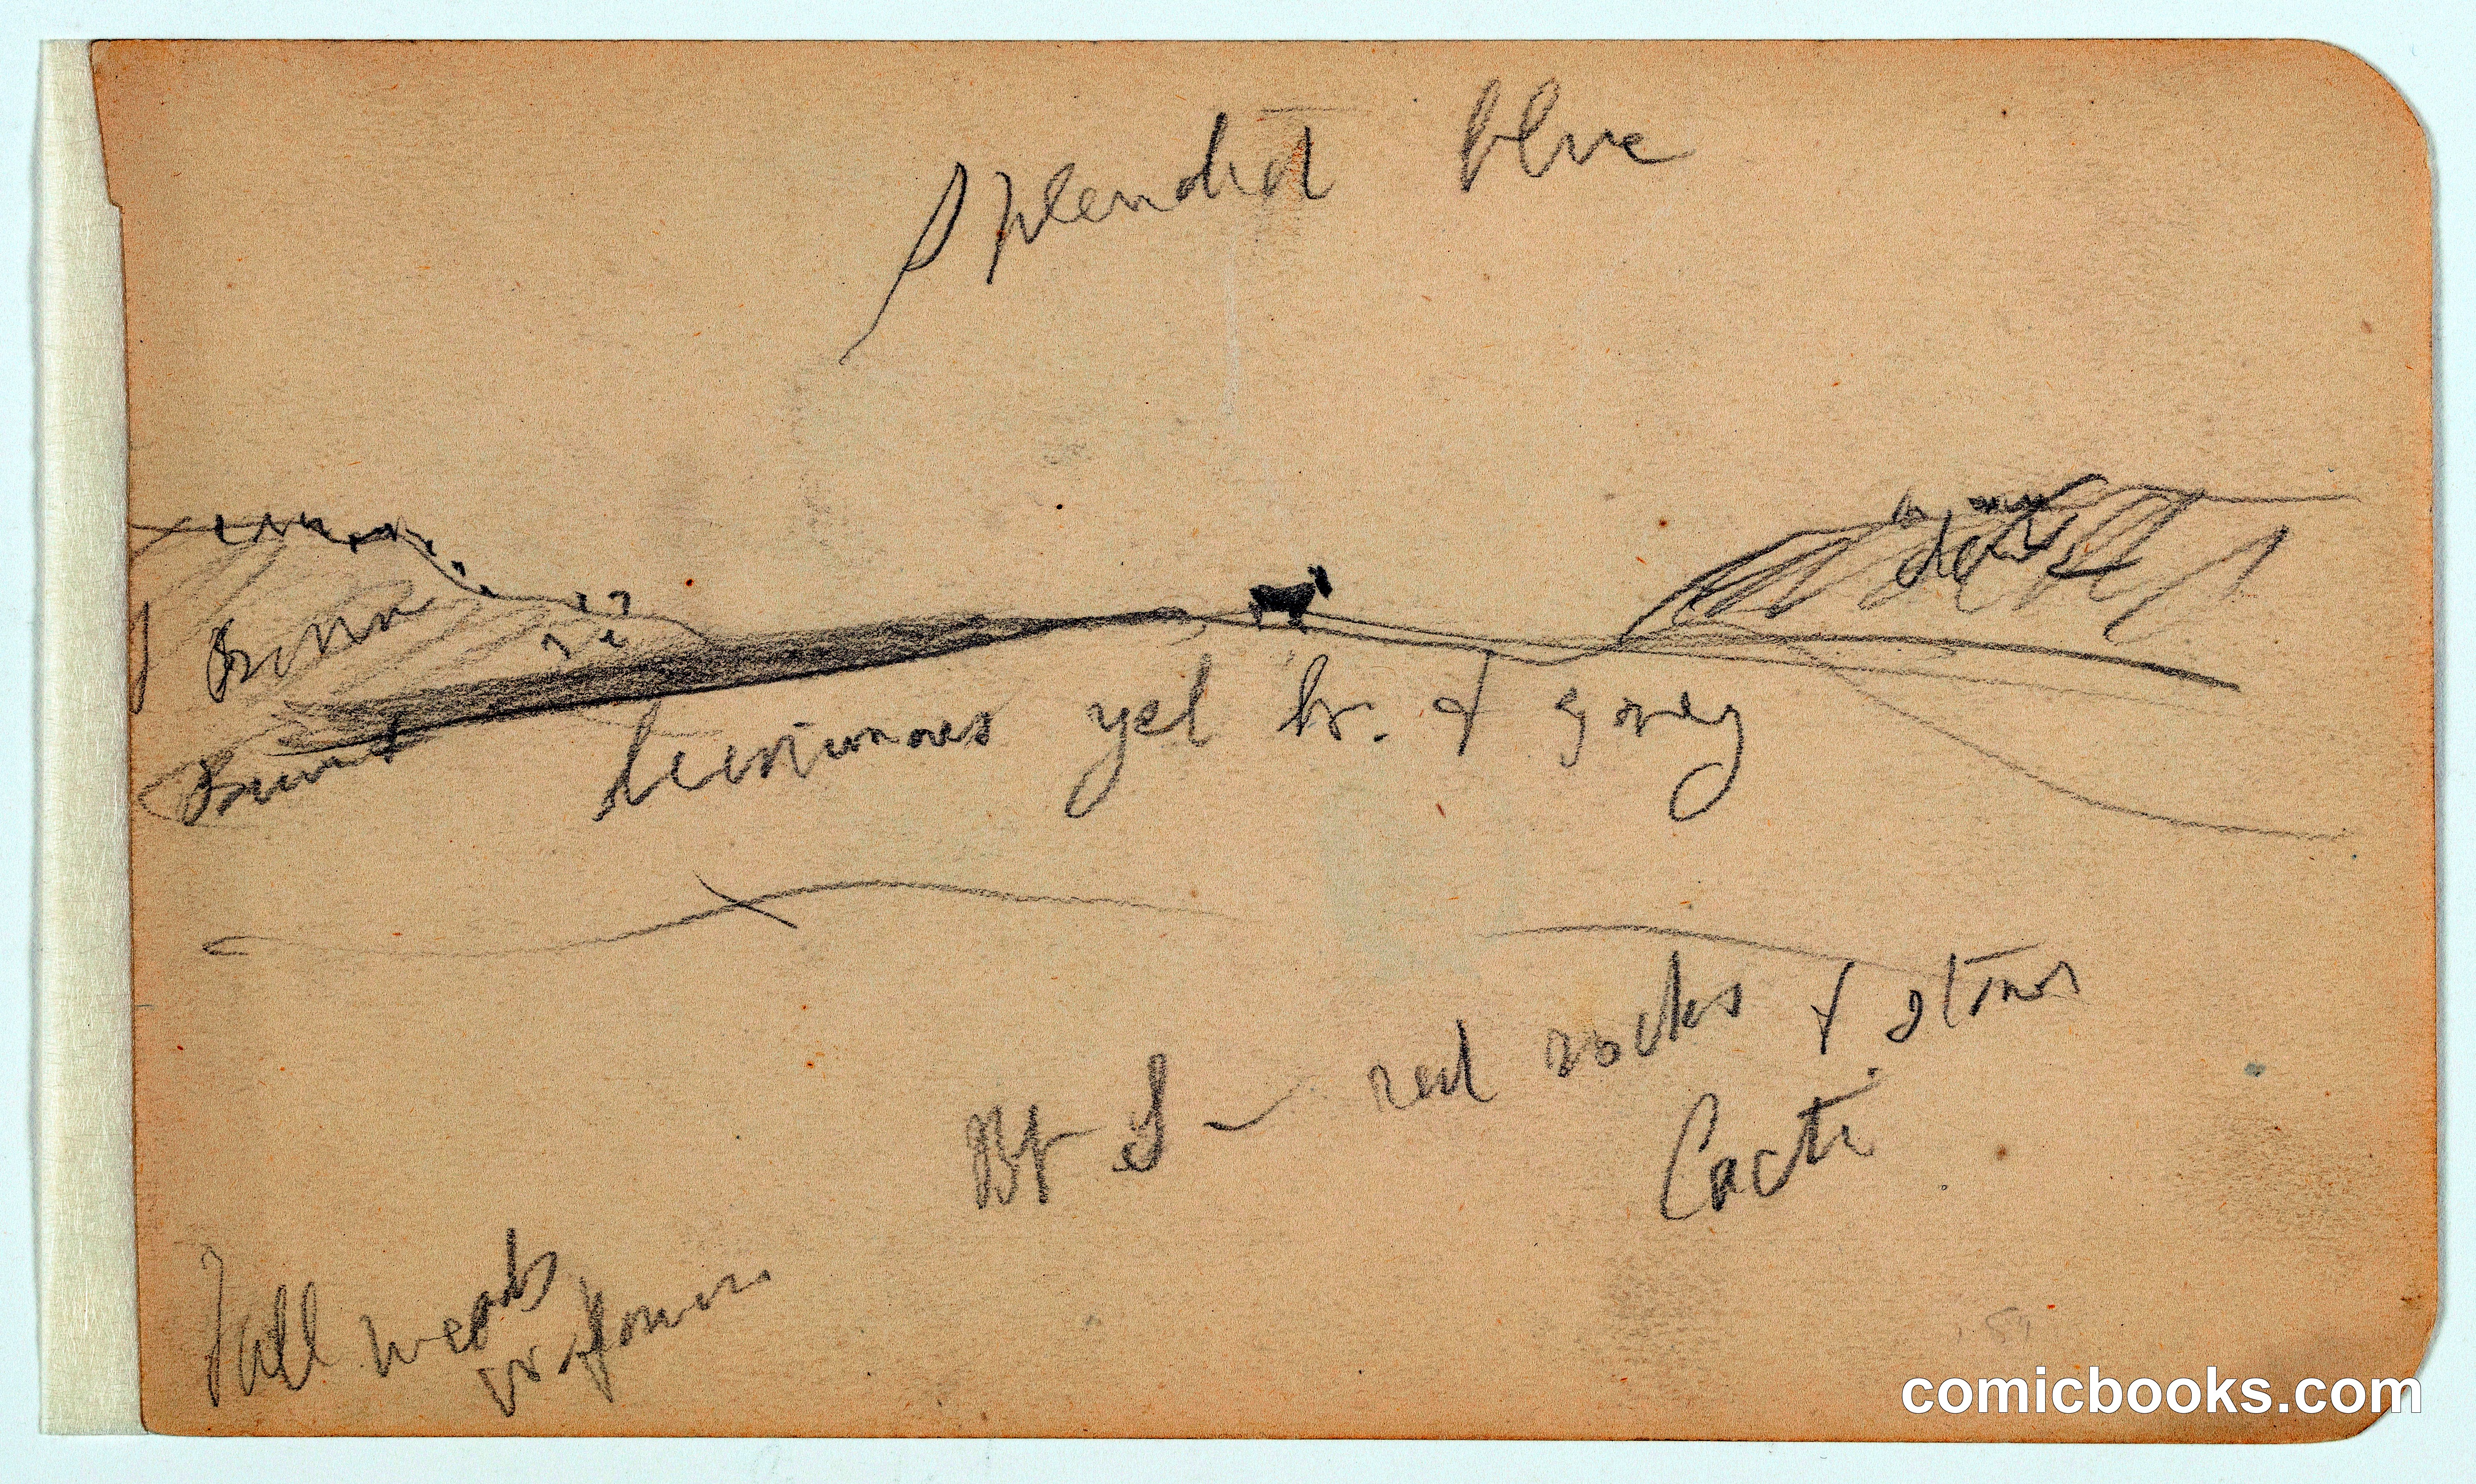 Splendid blue
Brown
Burnt
luminous yel br. & grey
Bt S – red rocks & stones
Cacti
Tall weeds
or flowers
comicbooks.com